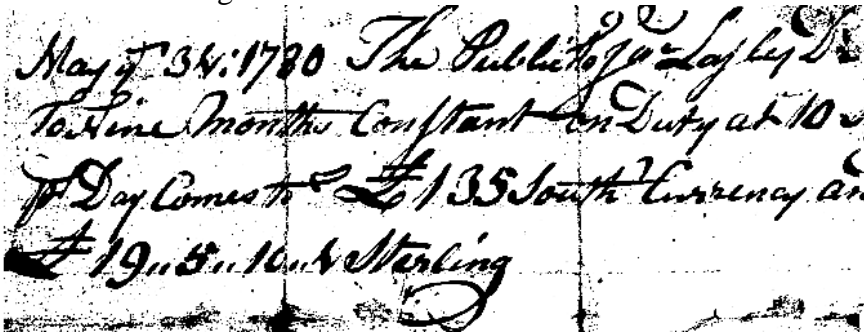 May ye 3d: 1780 The Public To Jas Lasley Dr
To Nine Months Constant on Duty at 10
pr Day Comes to £135 South Currency an
£19,,5,,10,,4 Sterling